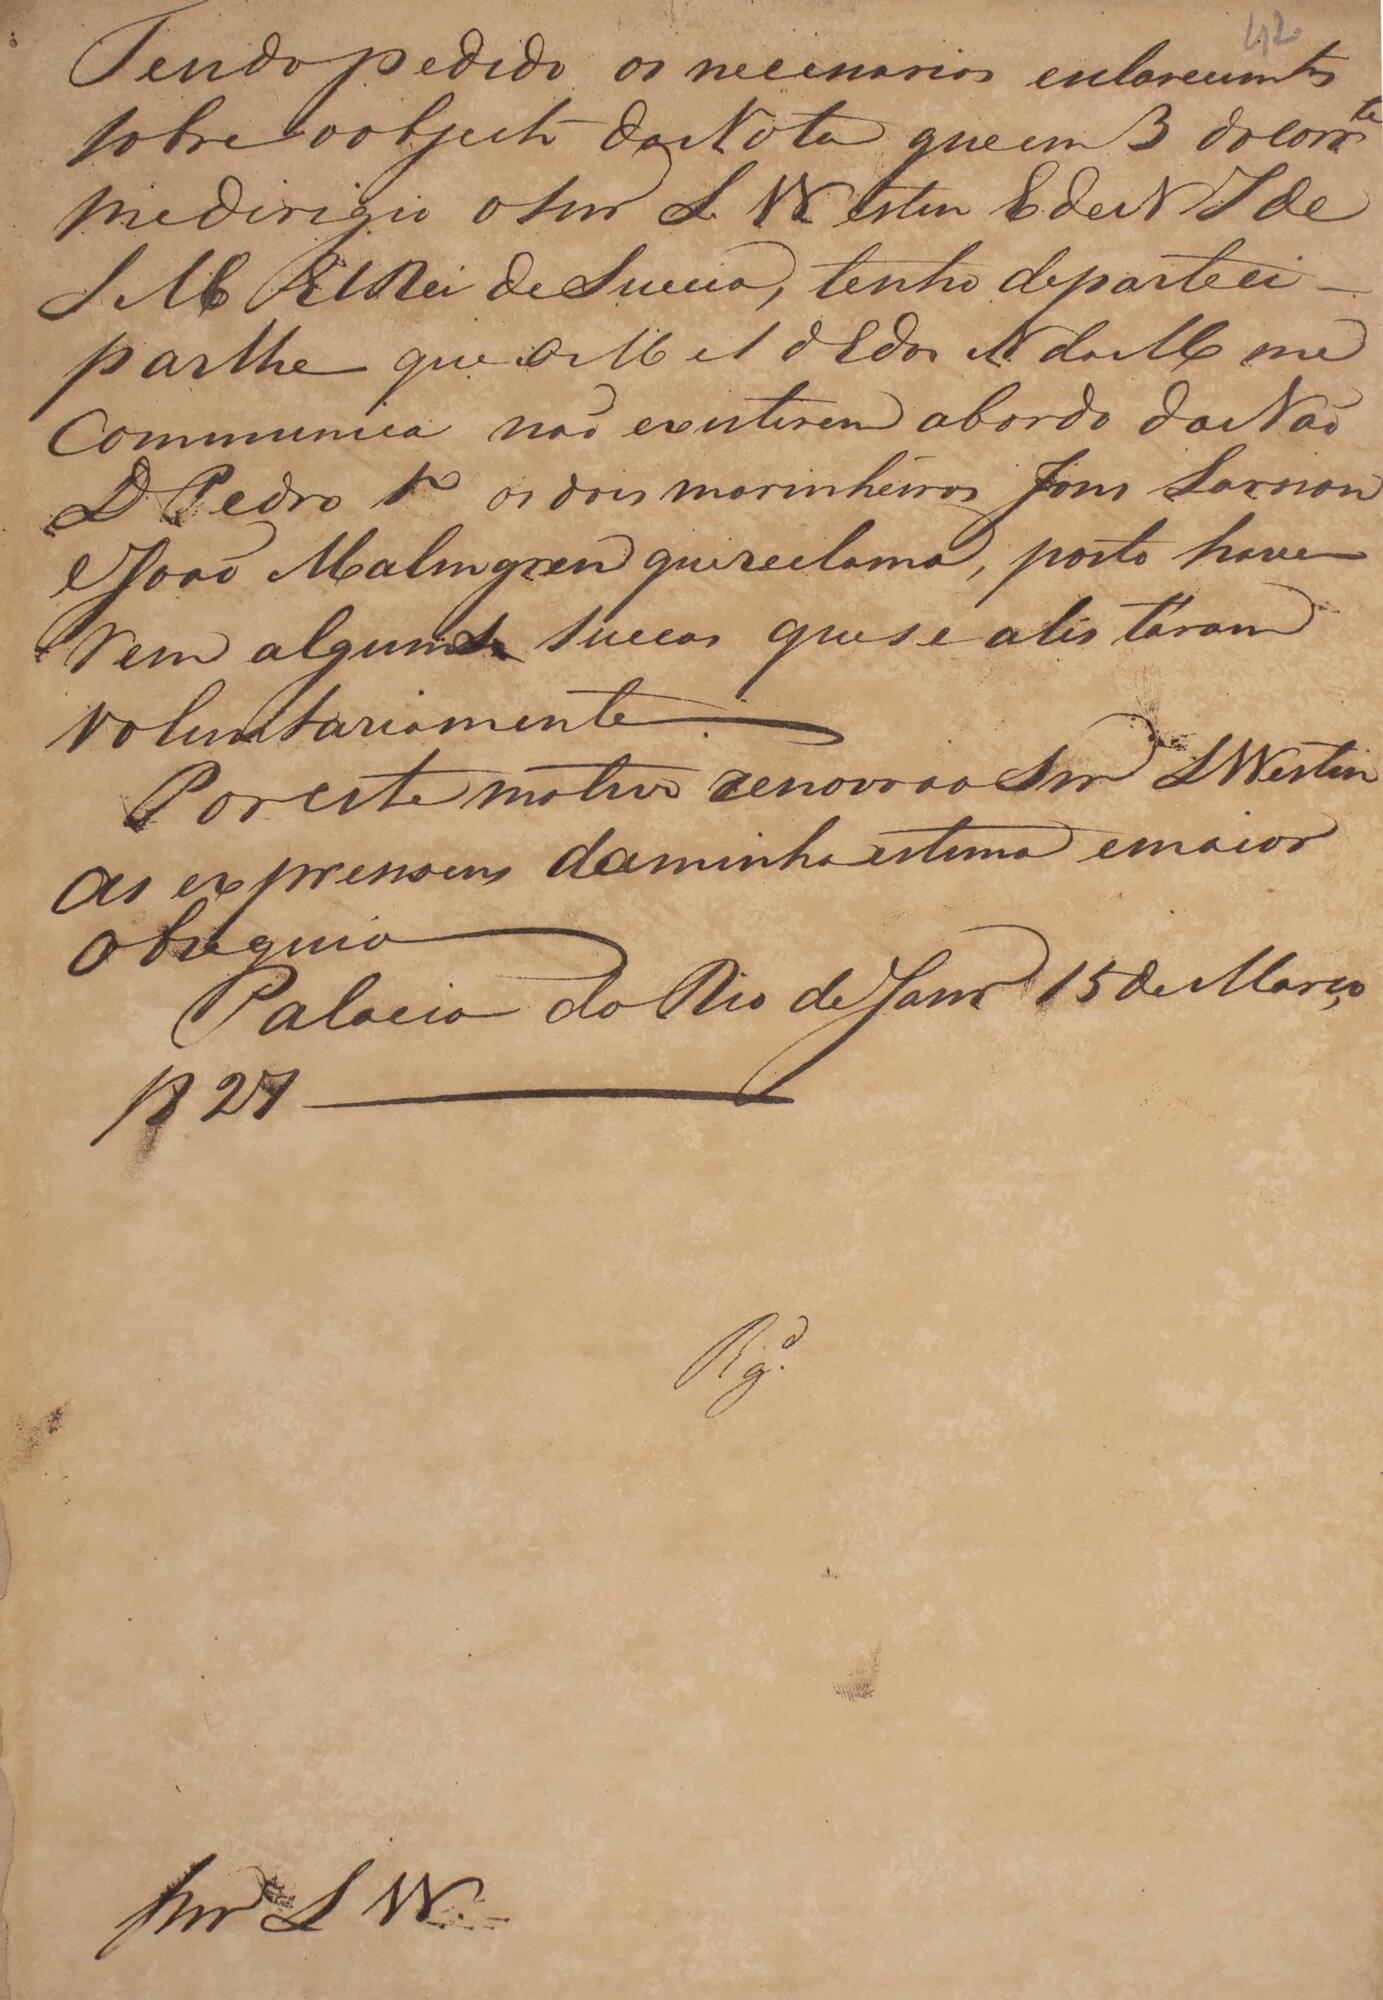 42
Tendo pedido os necessarios esclarecimtos
sobre o objecto da Nota que em 3 do corrte
me dirigio o Snr L Westin E de N J de
S M ElRei de Suecia, tenho de partici-
parlhe que o M e S d Edos N da M me
Communica não existirem abordo da Não
D Pedro 1o os dois marinheiros Jons Larsson
e João Malmgren que reclama, posto have
rem alguns Suecos que se alistáram
voluntariamente
Por este motivo renovo ao Snr L Westin
as expressoens da minha estima e maior
obsequio
Palacio do Rio de Janro 15 de Março
1827
Rgd.
Snr L W.